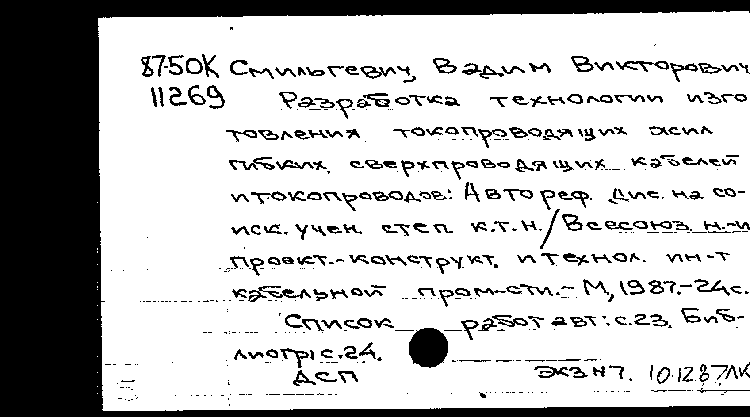 87-50К Смильгевич, Вадим Викторович
11269 Разработка технологии изго
товления токопроводящих жил
гибких сверхпроводящих кабелей
и токопроводов: Автореф. дис. на со-
иск. учен. степ. к.т.н. / Всесоюз. н.-и
проект.-конструкт. и технол. ин-т
кабельной пром-сти. - М, 1987. - 24 с.
Список работ авт: с. 23. Биб-
лиогр: с. 24.
ДСП экз н 7. 10.12.87 ЛК